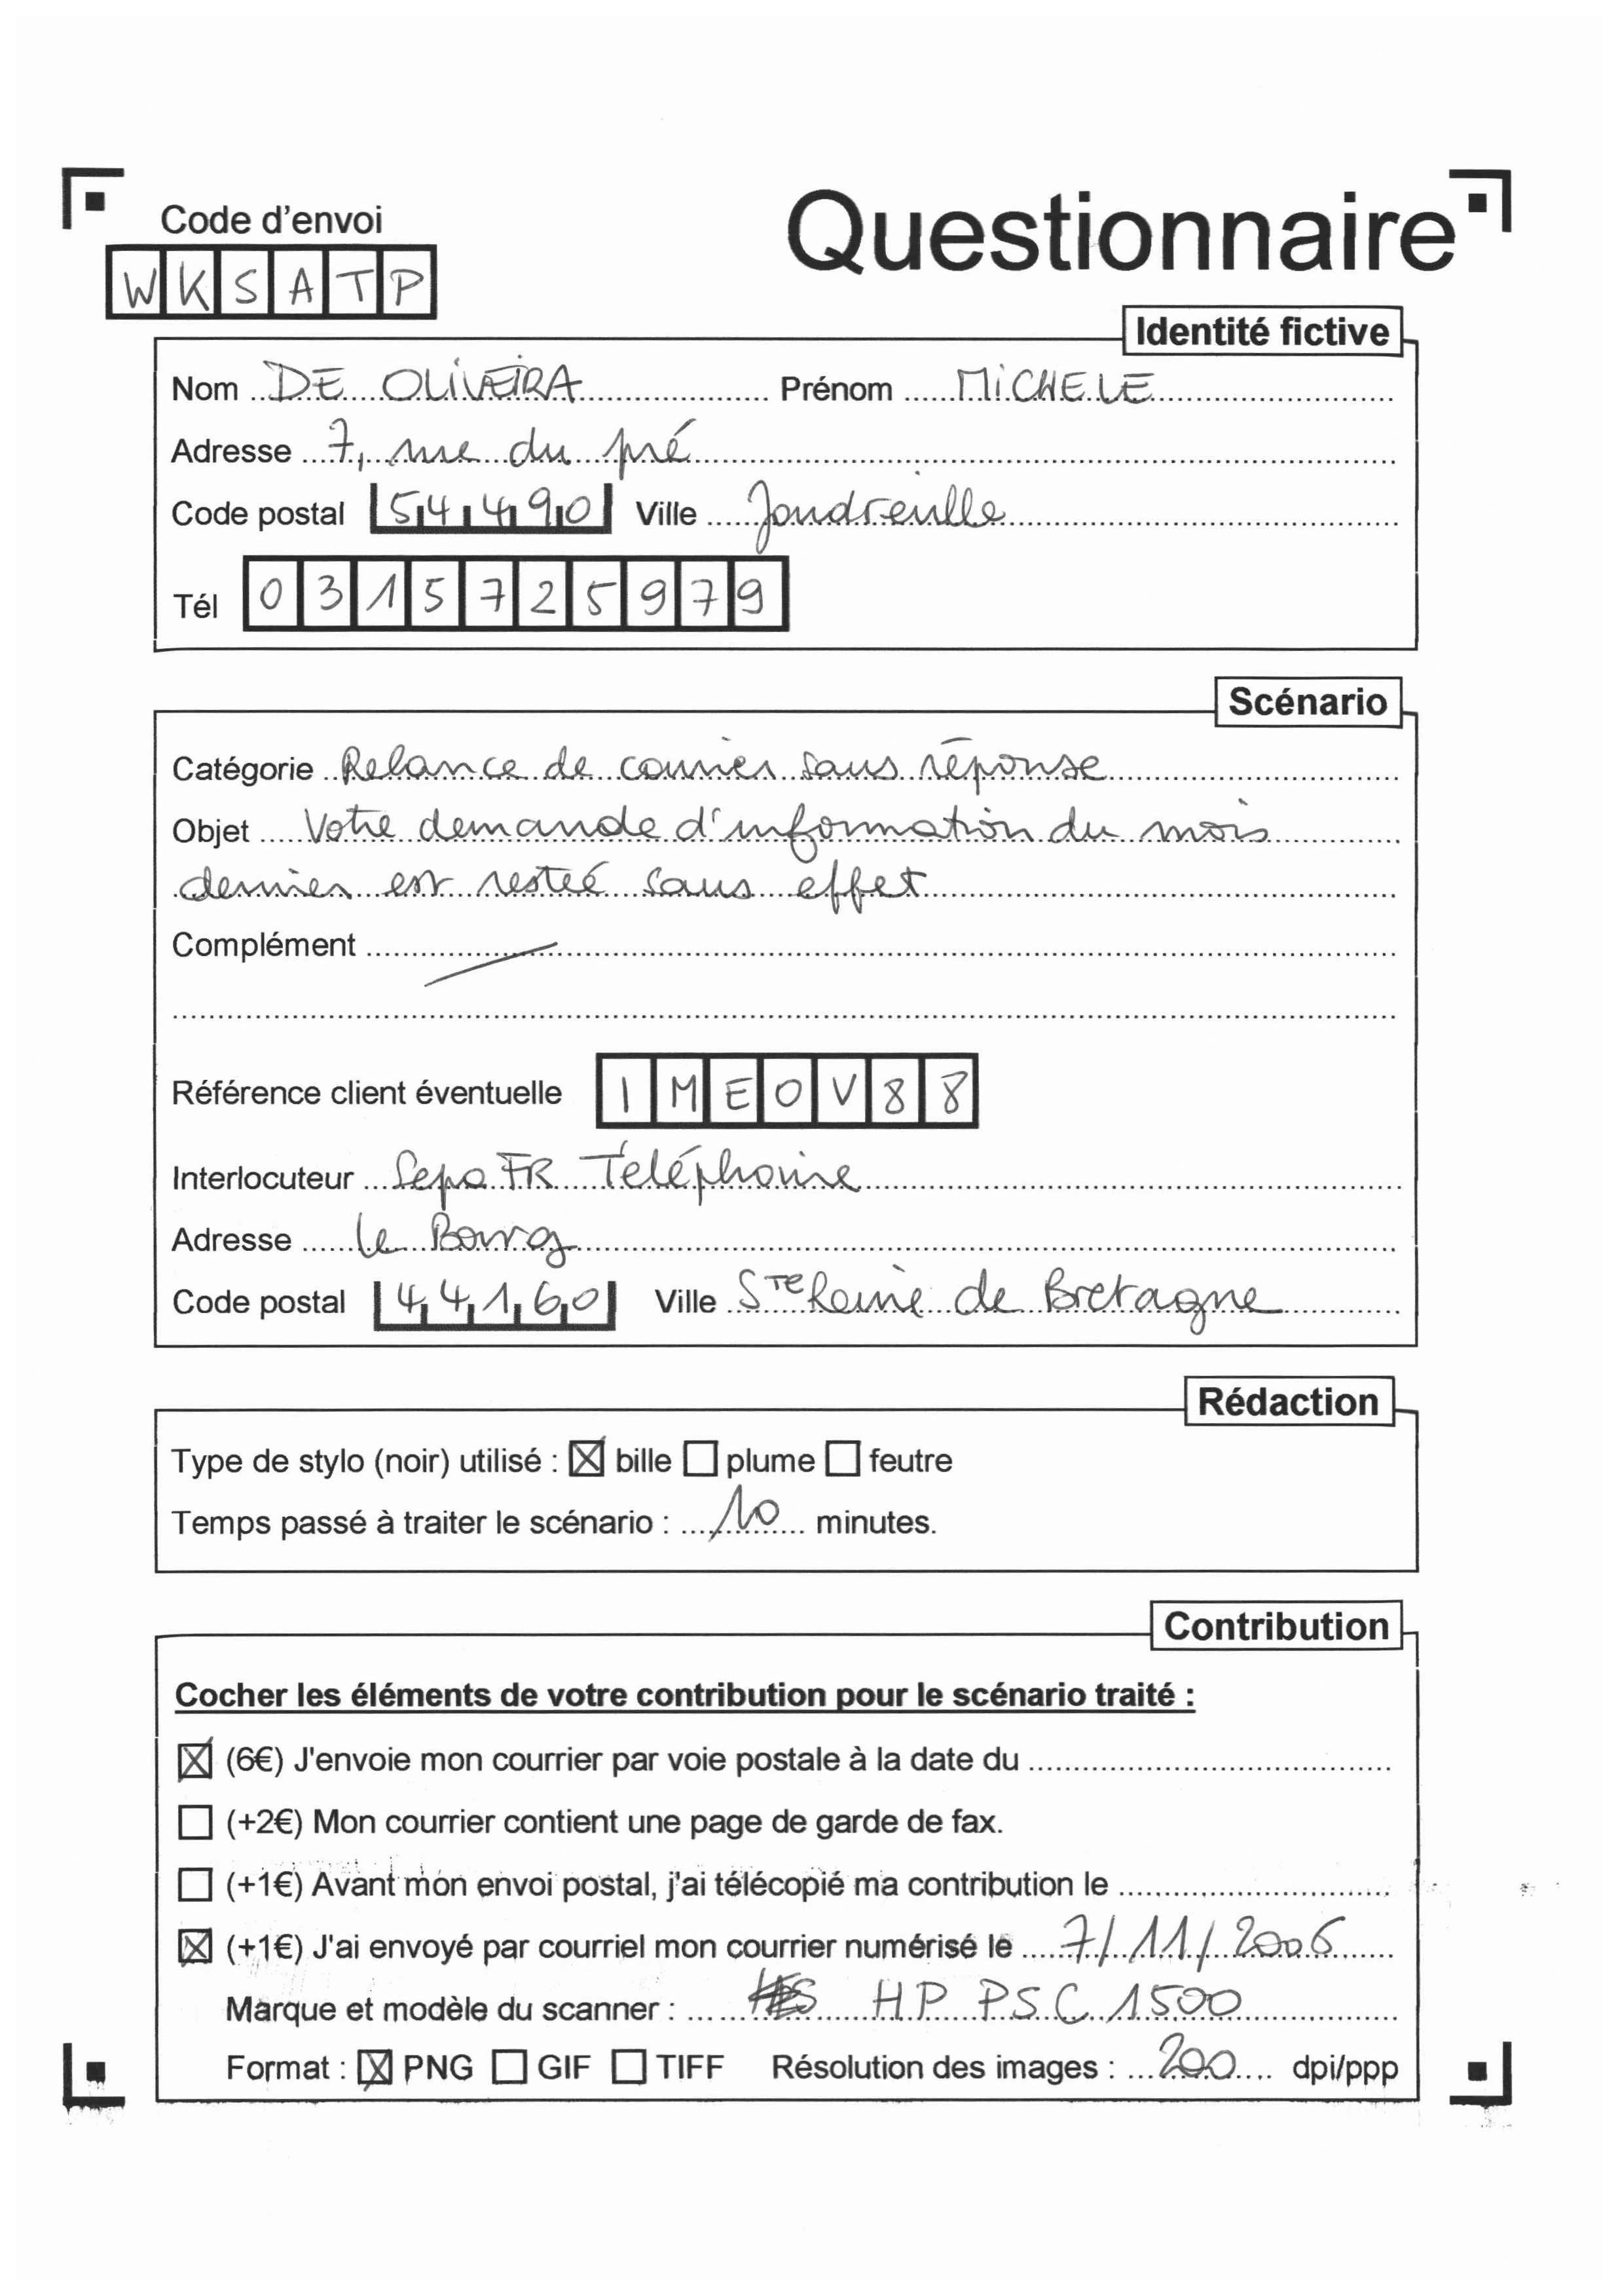 Code d'envoi
Questionnaire
WKSATP
Identité fictive
Nom DE OLIVEIRA Prénom MICHELE
Adresse 7, rue du pré
Code postal 54490 Ville Joudreville
Tél 0315725979
Scénario
Catégorie Relance de courrier sans réponse
Objet Votre demande d'information du mois
dernier est resteé sans effet
Complément
Référence client éventuelle IMEOV88
Interlocuteur Sepa FR Téléphonie
Adresse Le Bourg
Code postal 44160 Ville Ste Reine de Bretagne
Rédaction
Type de stylo (noir) utilisé : bille plume feutre
Temps passé à traiter le scénario : 10 minutes.
Contribution
Cocher les éléments de votre contribution pour le scénario traité :
(6€) J'envoie mon courrier par voie postale à la date du
(+2€) Mon courrier contient une page de garde de fax.
(+1€) Avant mon envoi postal, j'ai télécopié ma contribution le
(+1€) J'ai envoyé par courriel mon courrier numérisé le 7/11/2006
Marque et modèle du scanner : HP PSC 1500
Format : PNG GIF TIFF Résolution des images : 200 dpi/ppp